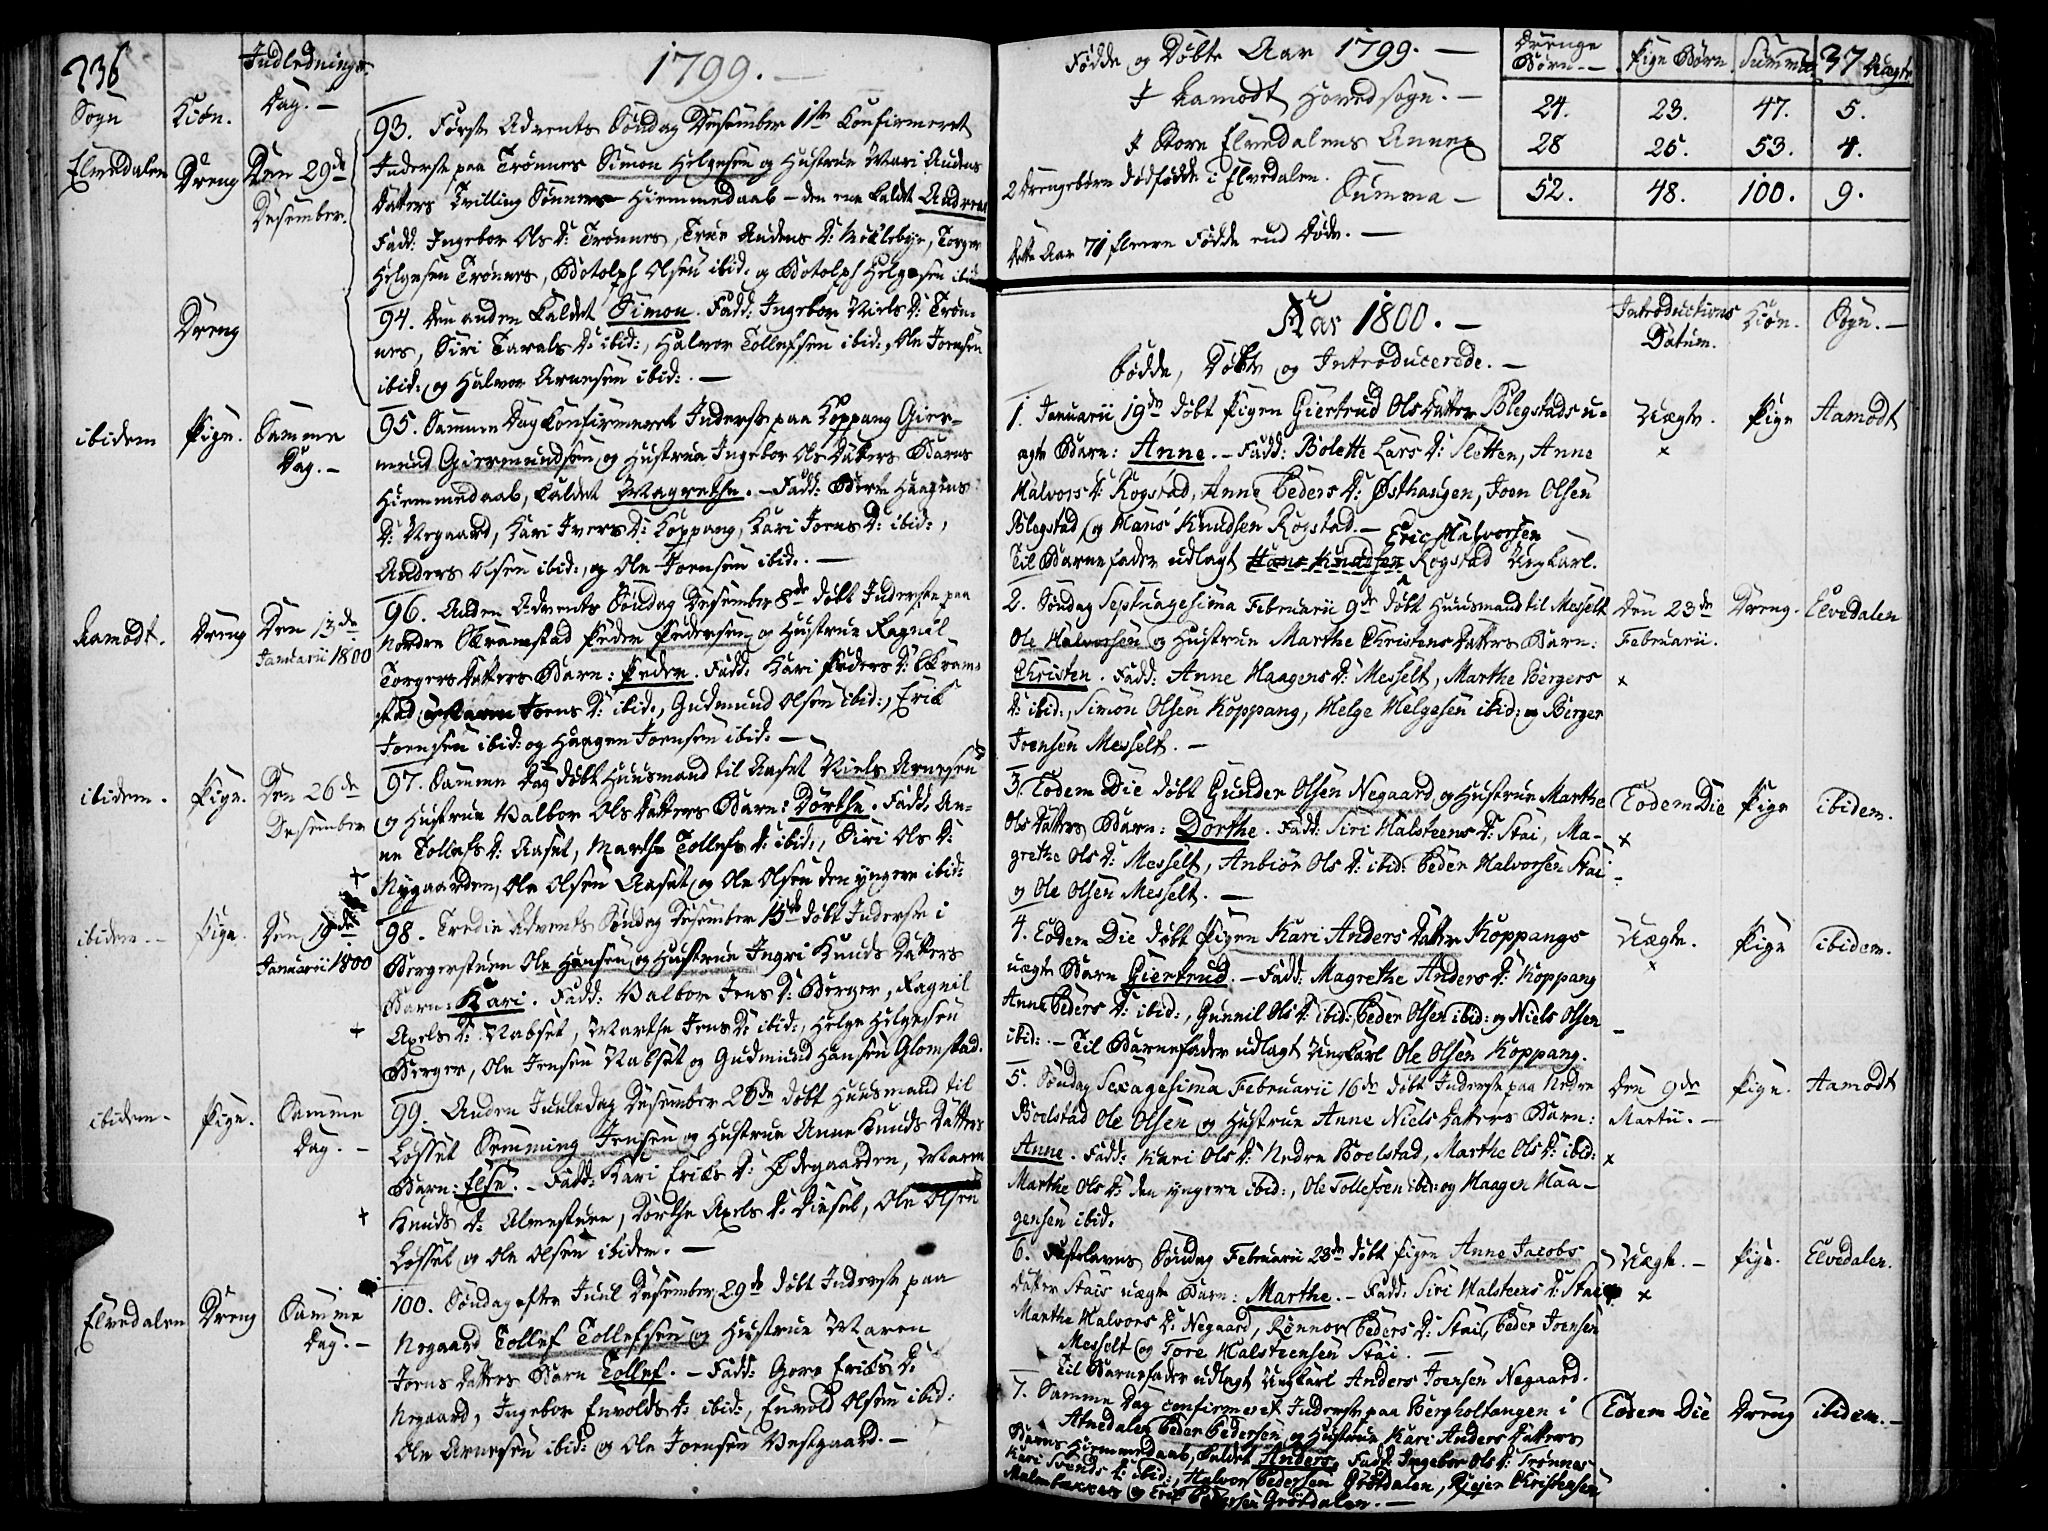 236
Indlednings
Dag. —
Sogn
Kiøn.
1799. —
Elvedalen
Dreng
Den 29de
Desember.
93. Første Advents Søndag Desember 1ste Confirmeret
Inderste paa Trønnes Simon Helgesen og Hustrue Mari Audens
Datters Tvilling Sønners Hiemmedaab — den ene kaldt Andreas
Fadd: Ingebor Ols D: Trønnes, True Audens D: Møklebye, Torger
Helgesen Trønnes, Botolph Olsen ibid: og Botolph Helgesen ibid:
Dreng
94. Den anden kaldet Simon. Fadd: Ingebor Niels D: Trøn-
nes, Siri Tarals D: ibid:, Halvor Tollefsen ibid:, Ole Joensen
ibid: og Halvor Arnesen ibid:. —
ibidem
Pige.
Samme
Dag. —
95. Samme Dag Confirmeret Inderste paa Koppang Gier-
mund Giermundsen og Hustrue Ingebor Ols Datters Barns
Hiemmedaab, kaldet Magrethe. — Fadd: Birte Haagens
D: Negaard, Kari Ivers D: Koppang, Kari Joens D: ibid:,
Anders Olsen ibid:, og Ole Joensen ibid:. —
Aamodt.
Dreng
Den 13de
Januarii 1800
96. Anden Advents Søndag Desember 8de døbt Inderste paa
Nordre Skramstad Peder Pedersen og Hustrue Ragnil
Torgers Datters Barn: Peder. Fadd: Kari Peders D: Skram-
stad, Joens D: ibid:, Gudmund Olsen ibid:, Erik
Joensen ibid: og Haagen Joensen ibid: —
ibidem.
Pige.
Den 26de
Desember
97. Samme Dag døbt Huusmand til Aaset Niels Arnesen
og Hustrue Valbor Ols Datters Barn: Dorthe. Fadd: An-
ne Tollefs D: Aaset, Marthe Tollefs D: ibid:, Siri Ols D:
Nygaarden, Ole Olsen Aaset og Ole Olsen den yngere ibid:
ibidem. —
Pige.
Den 19de
Januarii 1800
98. Tredie Advents Søndag Desember 15de døbt Inderste i
Bergerstuen Ole Hansen og Hustrue Ingri Knuds Datters
Barn: Kari. Fadd: Valbor Jens D: Berger, Ragnil
Axels D: Nabset, Marthe Jens D: ibid:, Helge Helgesen
Berger, Ole Jensen Nabset og Gudmund Hansen Glomstad.
ibidem —
Pige.
Samme
Dag. —
99. Anden Juuledag Desember 26de døbt Huusmand til
Løsset Semming Jensen og Hustrue Anne Knuds Datters
Barn: Else. — Fadd: Kari Eriks D: Ødegaarden, Maren
Knuds D: Almestuen, Dorthe Axels D: Diesel, Ole Olsen
Løsset og Ole Olsen ibidem. —
Elvedalen
Dreng
Samme
Dag. —
100. Søndag efter Juul Desember 29de døbt Inderste paa
Negaard Tollef Tollefsen og Hustrue Maren
Joens Datters Barn Tollef. — Fadd: Goro Eriks D:
Negaard, Ingebor Envolds D: ibid:, Envold Olsen ibid:
Ole Arnesen ibid: og Ole Joensen Vestgaard. —
Fødde og Døbte Aar 1799. —
Drenge
Børn —
Pige Børn
Summa
37 Uægte
I Aamodt Hovedsogn. —
24.
23.
47.
5.
I Store Elvedalens Annex
28
25.
53.
4.
2 Drengebørn dødfødde i Elvedalen.
Summa —
52.
48.
100.
9.
Dette Aar 71 fleere Fødde end Døde. —
Aar 1800. —
Introductions
Datum.
Kiøn.
Sogn. —
Fødde, Døbte og Introducerede. —
1. Januarii 19de døbt Pigen Giertrud Ols Datter Blegstads u-
ægte Barn: Anne. — Fadd: Bolette Lars D: Sletten, Anne
Halvors D: Rogstad, Anne Peders D: Østhaugen, Joen Olsen
Blegstad og Hans Knudsen Rogstad. —
Eric Halvorsen
Til Barnefader udlagt Hans Knudsen Rogstad Ungkarl.
Uægte.
×
Pige
Aamodt
2. Søndag Septuagesima Februarii 9de døbt Huusmand til Messelt
Ole Halvorsen og Hustrue Marthe Christens Datters Barn:
Christen. Fadd: Anne Haagens D: Messelt, Marthe Bergers
D: ibid:, Simon Olsen Koppang, Helge Helgesen ibid: og Berger
Joensen Messelt. —
Den 23de
Februarii.
×
Dreng.
Elvedalen
3. Eodem Die døbt Gunder Olsen Negaard og Hustrue Marthe
Ols Datters Barn: Dorthe. Fadd: Siri Halsteens D: Stai, Ma-
grethe Ols D: Messelt, Anbiør Ols D: ibid: Peder Halvorsen Stai
og Ole Olsen Messelt. —
Eodem Die
×
Pige
ibidem.
4. Eodem Die døbt Pigen Kari Anders Datter Koppangs
uægte Barn Giertrud. — Fadd: Magrethe Anders D: Koppang
Anne Peders D: ibid:, Gunnil Ols D: ibid: Peder Olsen ibid: og Niels Olsen
ibid:. — Til Barnefader udlagt Ungkarl Ole Olsen Koppang.
Uægte.
×
Pige
ibidem.
5. Søndag Sexagesima Februarii 16de døbt Inderste paa Nedre
Boelstad Ole Olsen og Hustrue Anne Niels Datters Barn:
Anne. Fadd: Kari Ols D: Nedre Boelstad, Marthe Ols D: ibid:
Marthe Ols D: den yngere ibid:, Ole Tollefsen ibid: og Haagen Haa-
gensen ibid:
Den 9de
Martii. —
×
Pige.
Aamodt
6. Fastelavns Søndag Februarii 23de døbt Pigen Anne Jacobs
Datter Stais uægte Barn: Marthe. — Fadd: Siri Halsteens D: Stai
Marthe Halvors D: Negaard, Rønnor Peders D: Stai, Peder Joensen
Messelt og Tore Halsteensen Stai. —
Til Barnefader udlagt Ungkarl Anders Joensen Negaard.
Uægte. —
×
Pige.
Elvedalen.
7. Samme Dag confirmeret Inderste paa Bergholtangen i
Atnedalen Peder Pedersen og Hustrue Kari Anders Datters
Barns Hiemmedaab, kaldet Anders. Fadd: Ingebor Ols D: Trønnes
Kari Svends D: ibid:, Halvor Pedersen Grøtdalen, Christensen
og Erik Pedersen Grøtdalen. —
Eodem Die
Dreng
ibidem. —